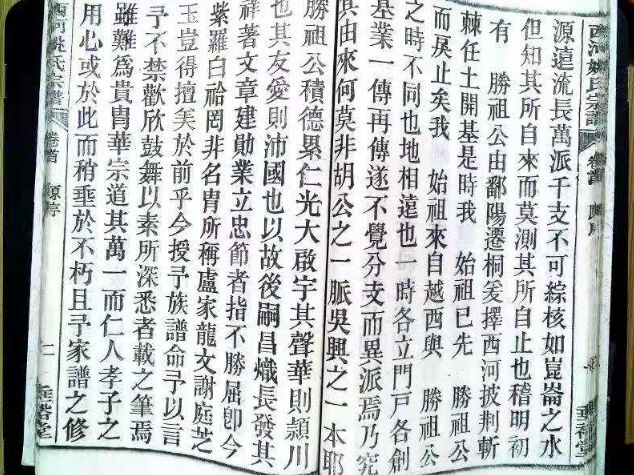 西河姚氏宗譜 卷首 原序
源遠流長萬派千支不可綜核如崑崙之水
但知其所自來而莫測其所自止也稽明初
有 勝祖公由鄱陽遷桐爰擇西河披荆斬
棘任土開基是時我 始祖已先 勝祖公
而戾止矣我 始祖來自越西與 勝祖公
之時不同也地相遠也一時各立門戶各創
基業一傳再傳遂不覺分支而異派焉乃究
其由來何莫非胡公之一脈吳興之一本耶
勝祖公積德累仁光大啟宇其聲華則潁川
也其友愛則沛國也以故後嗣昌熾長發其
祥著文章建勛業立忠節者指不勝屈卽今
紫羅白袷罔非名冑所稱盧家龍文謝庭芝
玉豈得擅美於前乎今授予族譜命予以言
予不禁歡欣鼓舞以素所深悉者載之筆焉
雖難爲貴冑華宗道其萬一而仁人孝子之
用心或於此而稍垂於不朽且予家譜之修
西河姚氏宗譜 卷首 原序 二 垂裕堂